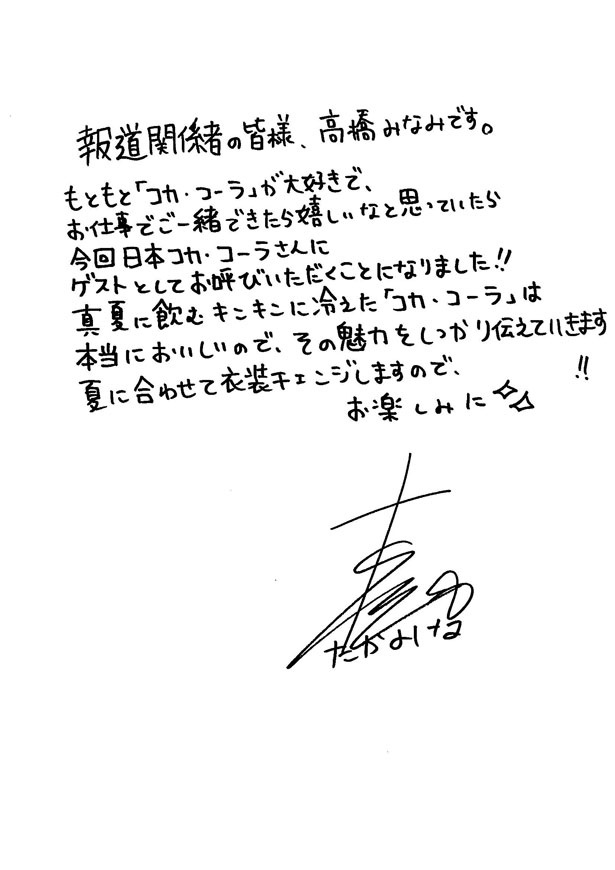 報道関係者の皆様、高橋みなみです。
もともと「コカ・コーラ」が大好きで、
お仕事でご一緒できたら嬉しいなと思っていたら
今回日本コカ・コーラさんに
ゲストとしてお呼びいただくことになりました!!
真夏に飲むキンキンに冷えた「コカ・コーラ」は
本当においしいので、その魅力をしっかり伝えていきます!!
夏に合わせて衣装チェンジしますので、
お楽しみに